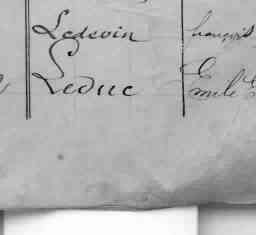 Ledevin François
Leduc Emile